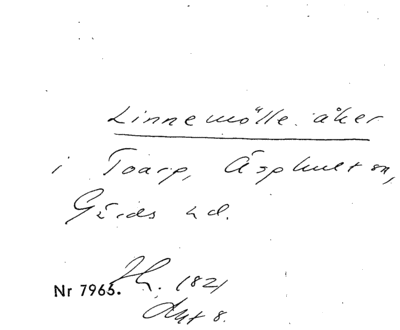 Linnemölle åker
i Toarp, Äsphult sn,
Gärds hd.
Nr 7965. Jh. 1821
Akt 8.